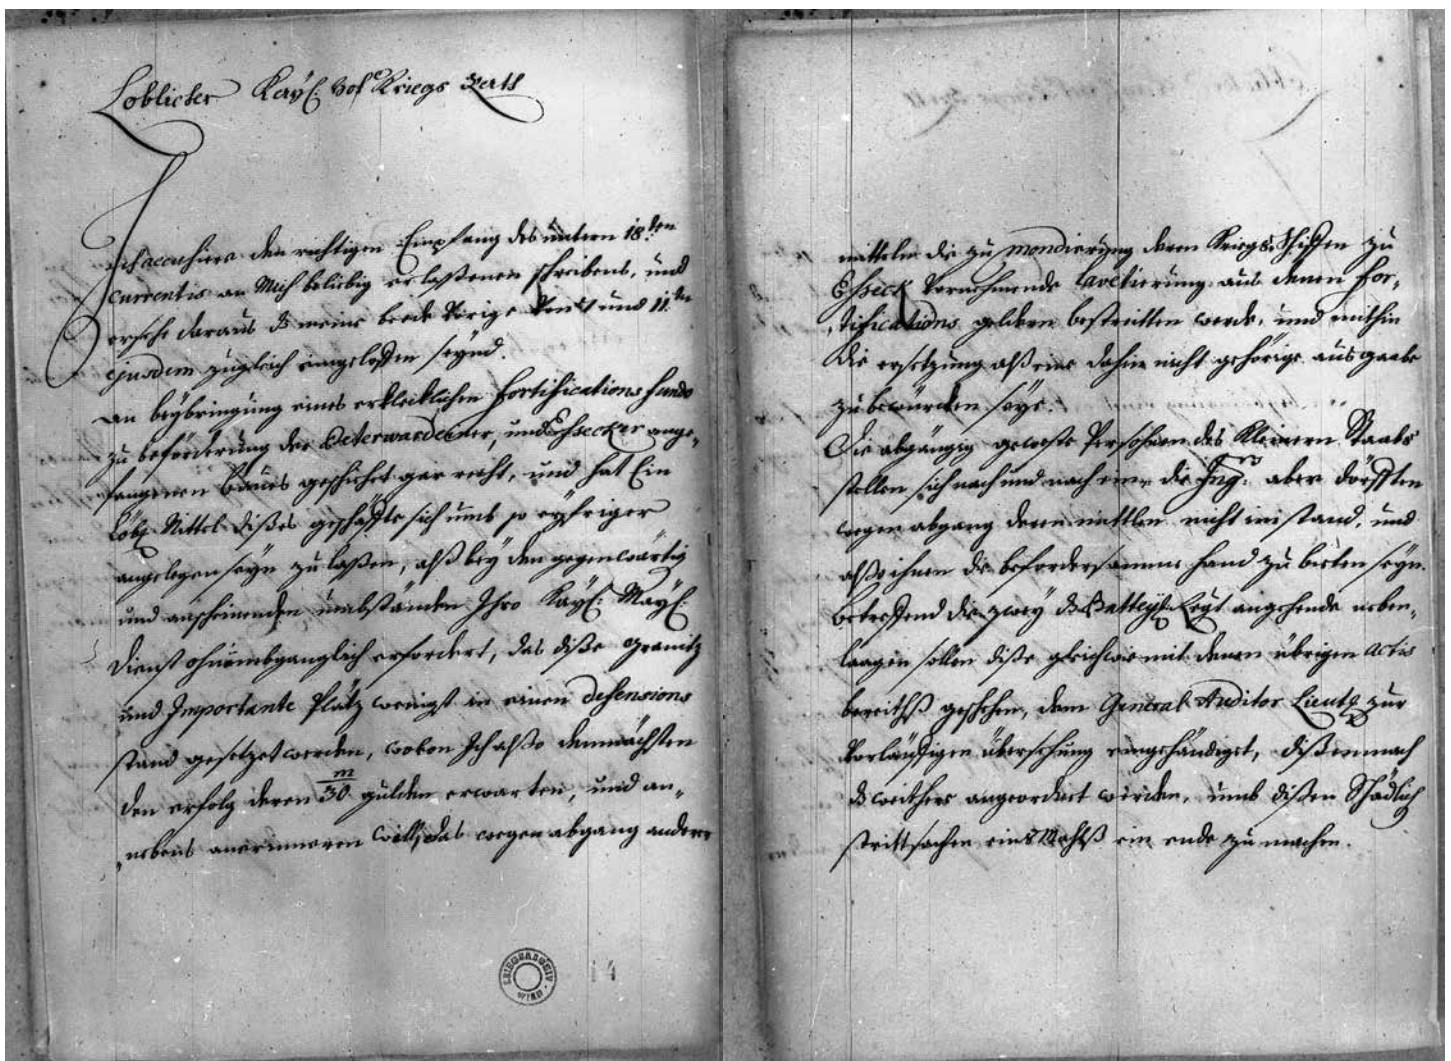 Loblicher Kayß: Hof Kriegs Rath
Ich accusiere den richtigen Empfang des untern 18.ten
currentis an Mich beliebig erlaßenen schreibens, und
ersehe daraus dß meine beede vorige vom und 11.ten
ejusdem zugleich eingeloffen seynd.
An beybringung eines erklecklichen fortifications fundo
zu beförderung des Peterwardeiner, und Esseker ange„
fangenen baues geschichet gar recht, und hat Ein
Löbl. Mittel dißes geschäffte sich umb so eyfriger
angelegen seyn zu laßen, alß bey den gegenwärtig
und anscheinenden umbständen Ihro Kayß: Mayß:
Dienst ohnumbgänglich erfordert, das diße granitz
und Importante Plätz wenigst in einen defensions
stand gesetzet werden, wovon Ich alßo demnächsten
den erfolg deren m/30 gulden erwarten, und an„
„nebens anerinneren will, das wegen abgang anderer
mitteln die zu mondierung deren Kriegs Schiffen zu
Esseck vornehmende Lavetierung aus denen for„
„tifications geldern bestritten werde, und mithin
die ersetzung alß eine dahin nicht gehörige ausgaabe
zu bewürcken seye.
Die abgängig geweste Persohnen des Kleinern Staabs
stellen sich nach und nach ein, die Ing.rs aber dörfften
wegen abgang deren mittlen nicht im stand, und
alßo ihnen die befordersamme hand zu bieten seyn.
Betreffend die zwey dß Batteyl. Regt angehende neben„
laagen sollen diße gleichwie mit denen übrigen actis
bereithß geschehen, dem General Auditor Lieutt. zur
vorläuffigen übersehung eingehändiget, dißemnach
dß weithere angeordnet werden, umb dißen Schädlich
strittsachen einsmahlß ein ende zu machen.
KRIEGSARCHIV
WIEN
14